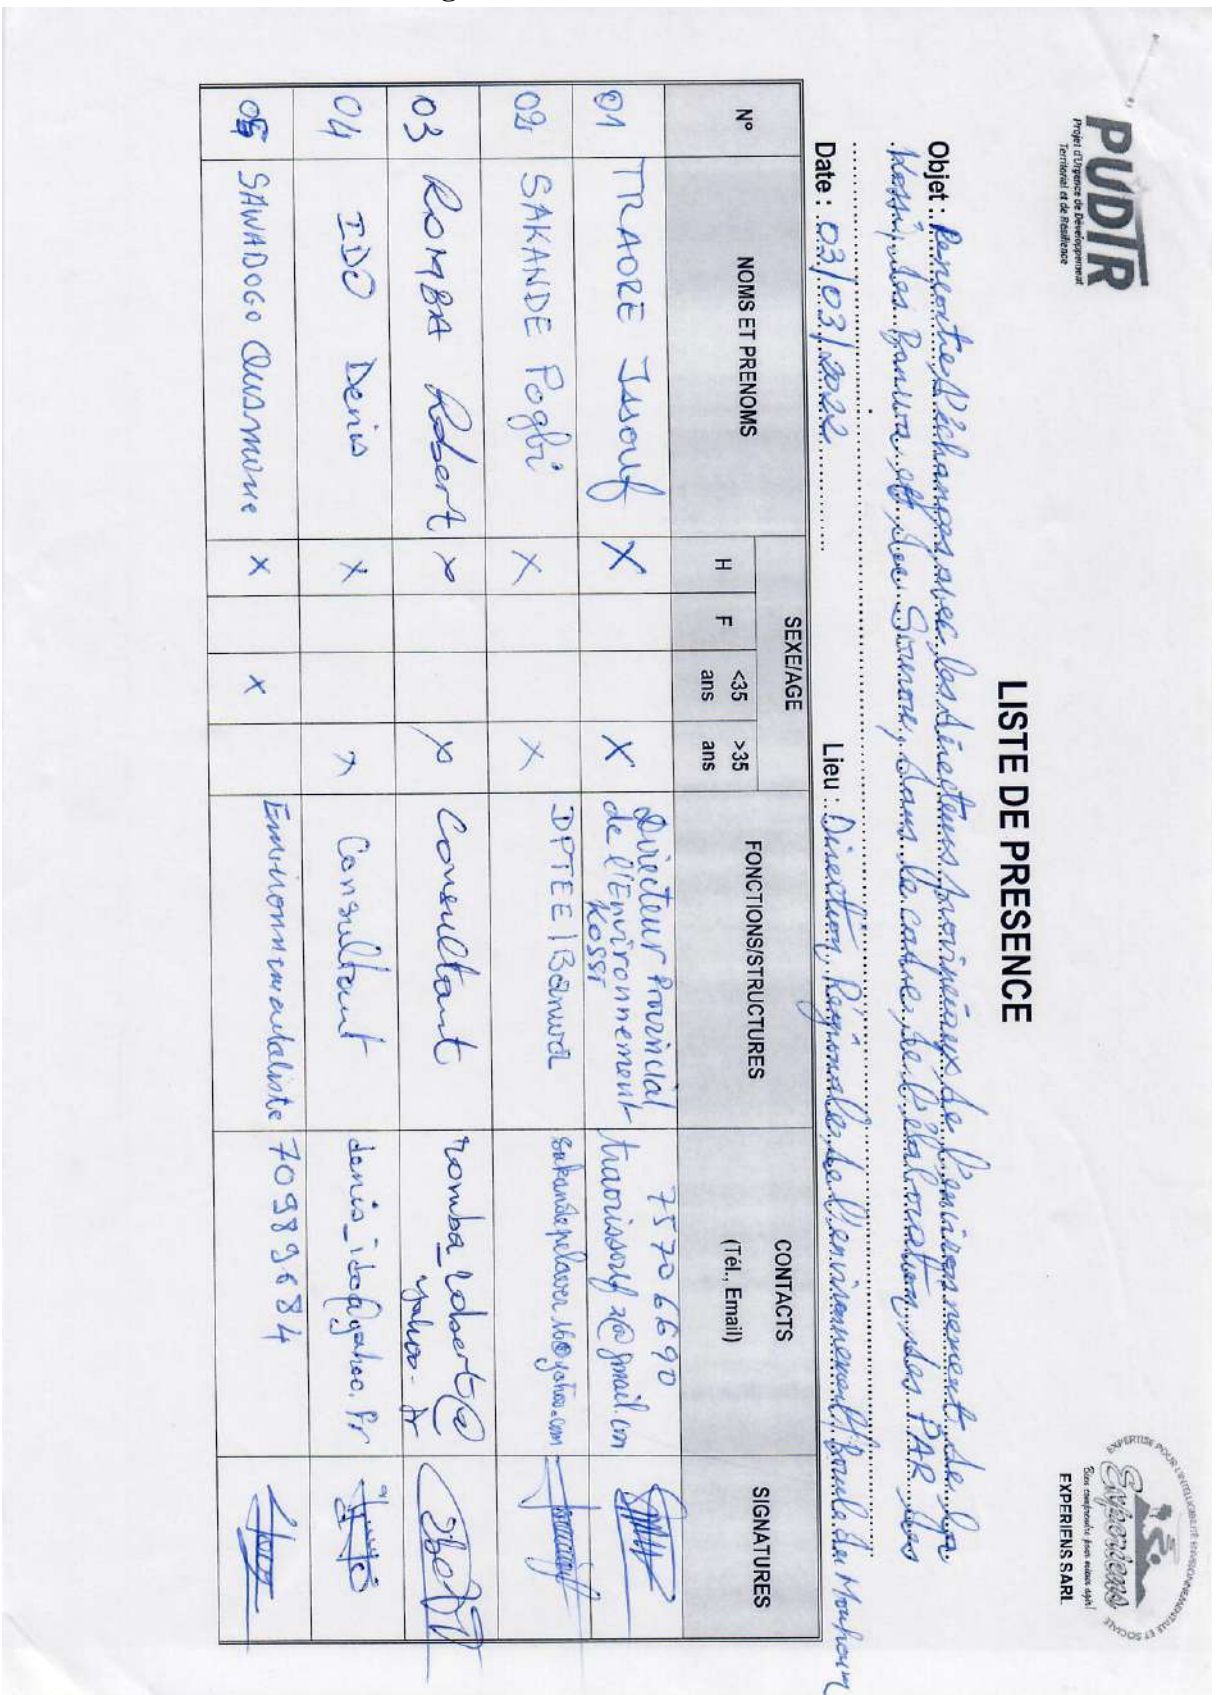 PUDTR
Projet d'Urgence de Développement
Territorial et de Résilience
EXPERTISE POUR L'INTELLIGIBILITÉ ENVIRONNEMENTALE ET SOCIALE
Experiens
Bien comprendre pour mieux agir!
EXPERIENS SARL
LISTE DE PRESENCE
Objet : Rencontre d'échanges avec les directeurs provinciaux de l'environnement de la
Kossi, des Banwa et du Sourou, dans le cadre de l'élaboration des PAR
Date : 03/03/2022 Lieu : Direction Régionale de l'environnement Boucle du Mouhoun
N° NOMS ET PRENOMS SEXE/AGE FONCTIONS/STRUCTURES CONTACTS SIGNATURES
H F <35 ans >35 ans (Tél., Email)
01 TRAORE Issouf X X Directeur Provincial de l'Environnement Kossi 75706690
02 SAKANDE Pogbi X X DPTEE/Banwa
03 ROMBA Robert x x Consultant romba_robert@yahoo.fr
04 IDO Denis x x Consultant denis_ido@yahoo.fr
05 SAWADOGO Ousmane x x Environnementaliste 70989684